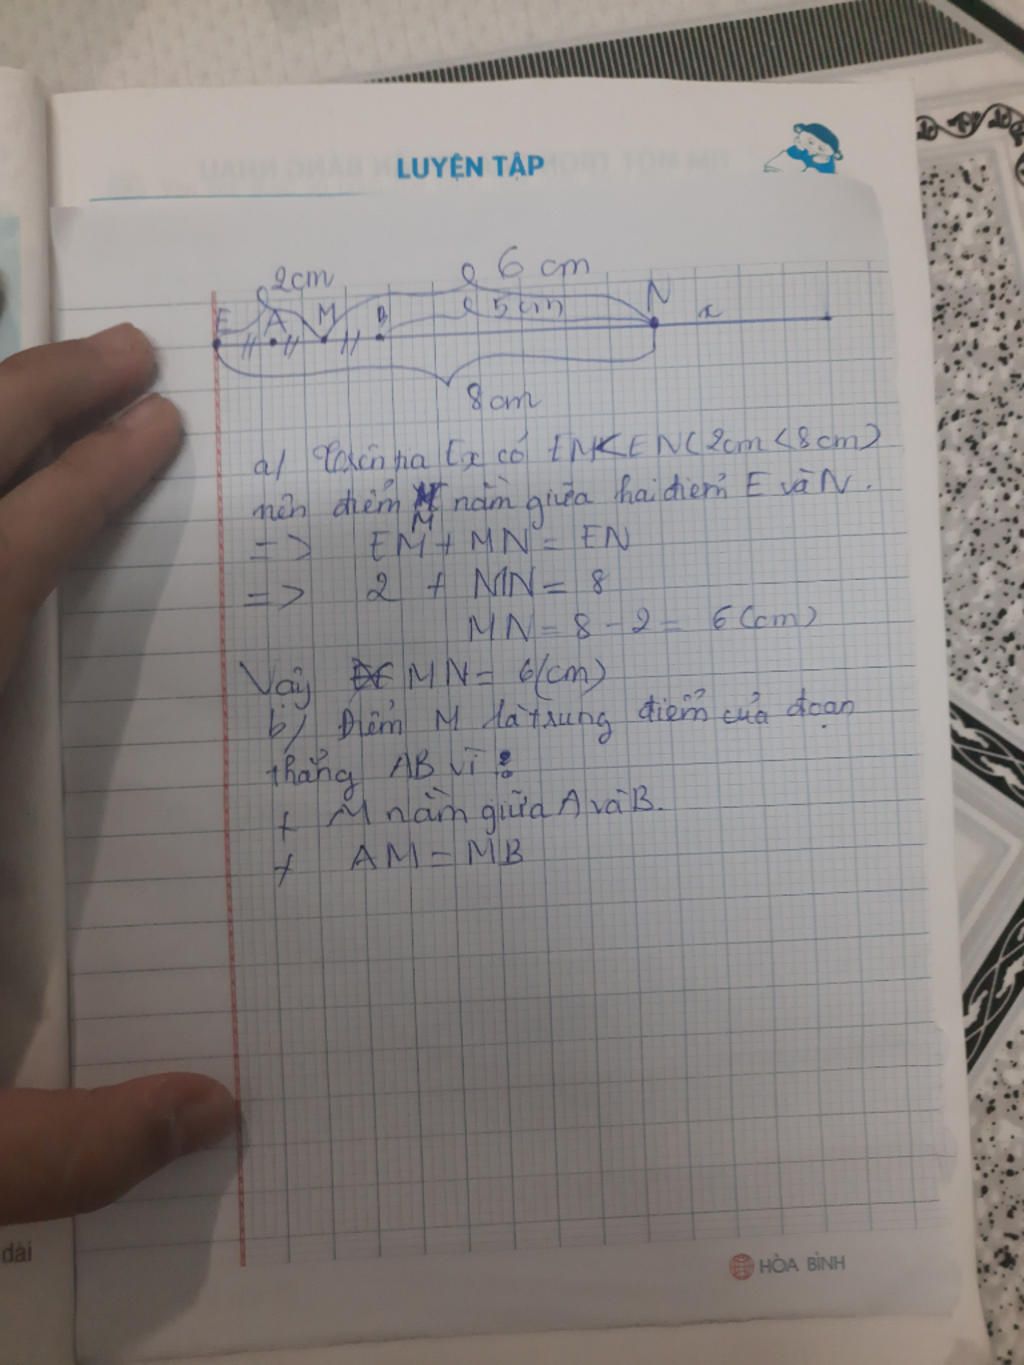 LUYỆN TẬP
2cm
6 cm
5cm
E A M B N x
8cm
a) Trên tia Ex có EM<EN(2cm<8cm)
nên điểm M nằm giữa hai điểm E và N.
=> EM + MN = EN
=> 2 + MN = 8
MN = 8 - 2 = 6(cm)
Vậy MN = 6(cm)
b) Điểm M là trung điểm của đoạn
thẳng AB vì :
+ M nằm giữa A và B.
+ AM = MB
dài
HÒA BÌNH